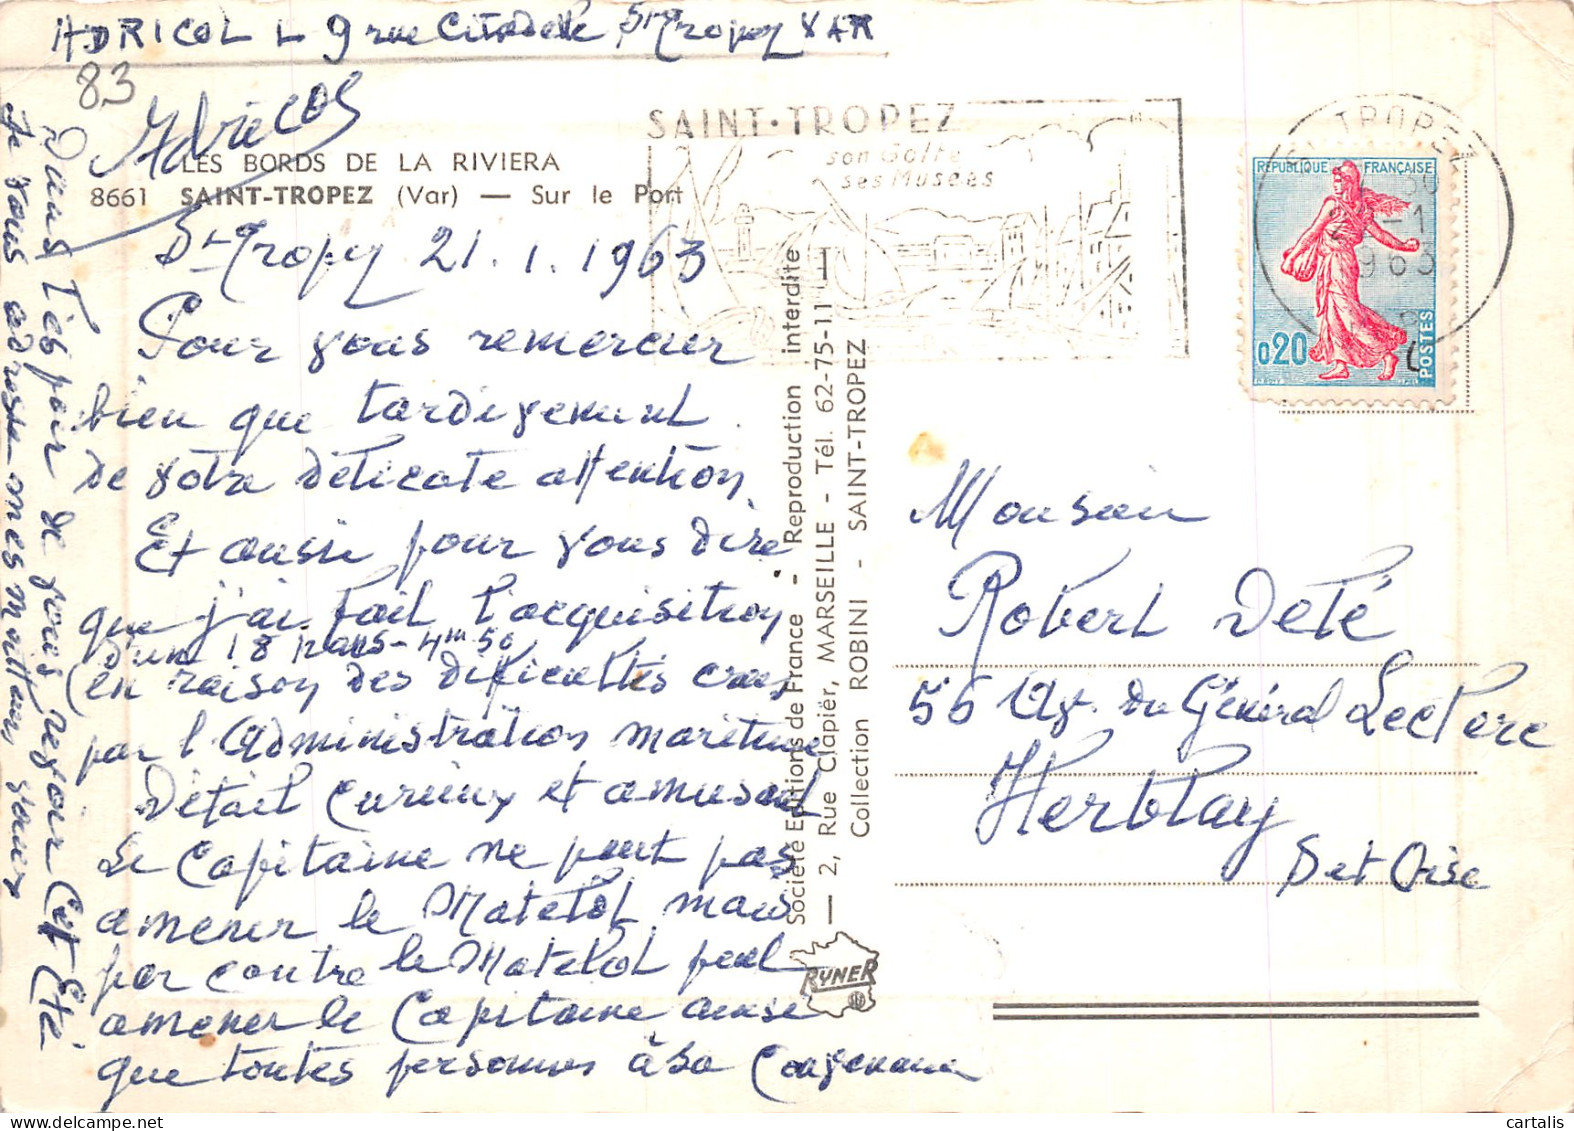 ADRICOL L 9 rue Citadelle St Tropez VAR
83
Adricol
LES BORDS DE LA RIVIERA
8661 SAINT-TROPEZ (Var) — Sur le Port
St Tropez 21.1.1963
Pour vous remercier
bien que tardivement
de votre délicate attention
Et aussi pour vous dire
que j'ai fait l'acquisition
d'un 18 pans - 4m50
(en raison des difficultés crées
par l'Administration maritime
Détail curieux et amusant
Le Capitaine ne peut pas
amener le Matelot mais
par contre le Matelot peut
amener le Capitaine ainsi
que toutes personnes à sa convenance
Dans l'espoir de vous revoir cet Eté
Je vous adresse mes meilleurs vœux
SAINT·TROPEZ
son Golfe
ses Musées
TROPEZ
-1
1963
RÉPUBLIQUE FRANÇAISE
0,20
POSTES
Société Editions de France - Reproduction interdite
— 2, Rue Clapier, MARSEILLE - Tél. 62-75-11
Collection ROBINI - SAINT-TROPEZ
RYNER
Monsieur
Robert Deté
56 Av. du Général Leclerc
Herblay
S et Oise
cartalis